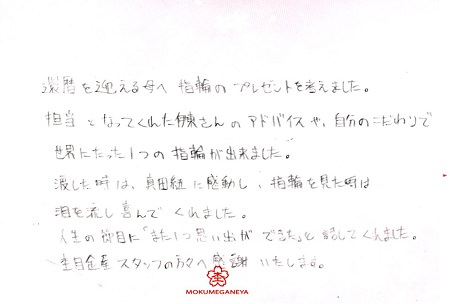 還暦を迎える母へ 指輪の プレゼントを考えました。
担当 となってくれた伊東さんの アドバイスや、自分のこだわりで
世界にたった1つの 指輪が出来ました。
渡した時は、真田紐に感動し、指輪を見た時は
泪を流し喜んで くれました。
人生の節目に「また1つ思い出が できた」と 話してくれました。
杢目金屋 スタッフの方々へ 感謝 いたします。
MOKUMEGANEYA